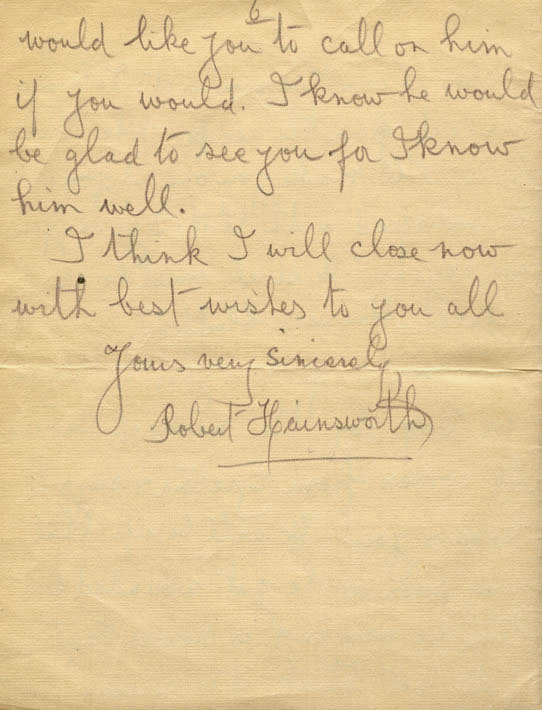 6
would like you to call on him
if you would. I know he would
be glad to see you for I know
him well.
I think I will close now
with best wishes to you all
Yours very Sincerely
Robert Hainsworth